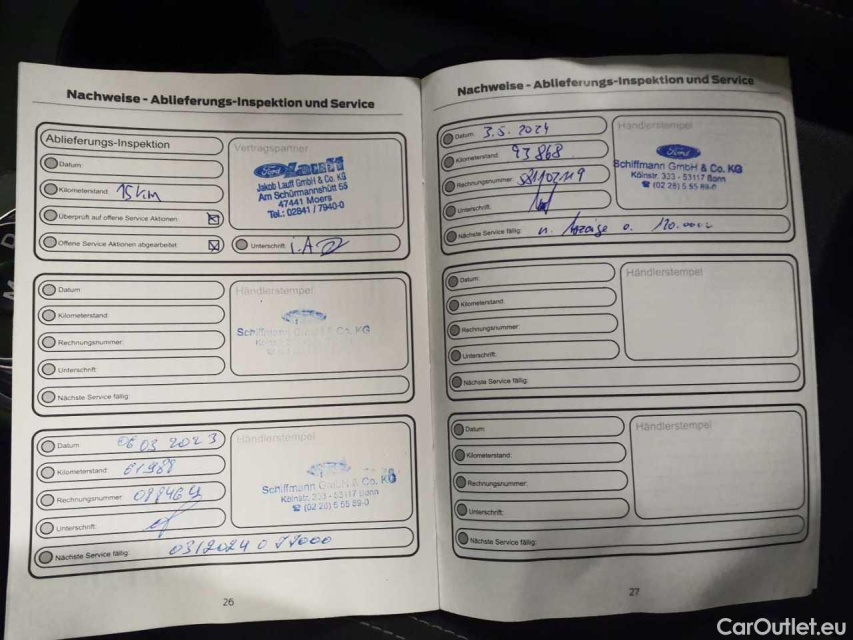 Nachweise - Ablieferungs-Inspektion und Service
Ablieferungs-Inspektion
Datum:
Kilometerstand: 15 km
Überprüft auf offene Service Aktionen
Offene Service Aktionen abgearbeitet
Vertragspartner
Ford Lauff
Jakob Lauff GmbH & Co. KG
Am Schürmannshütt 55
47441 Moers
Tel.: 02841 / 7940-0
Unterschrift: i.A.
Datum:
Kilometerstand:
Rechnungsnummer:
Unterschrift:
Nächste Service fällig:
Händlerstempel
Schiffmann GmbH & Co. KG
Datum: 06 03 2023
Kilometerstand: 61988
Rechnungsnummer:
Unterschrift:
Nächste Service fällig: 03/2024 0
Händlerstempel
Schiffmann GmbH & Co. KG
Kölnstr. 333 - 53117 Bonn
☎ (02 28) 5 55 89-0
26
Nachweise - Ablieferungs-Inspektion und Service
Datum: 3.5.2024
Kilometerstand: 93868
Rechnungsnummer: S1102119
Unterschrift:
Nächste Service fällig: n. Anzeige o. 120.000
Händlerstempel
Ford
Schiffmann GmbH & Co. KG
Kölnstr. 333 - 53117 Bonn
☎ (02 28) 5 55 89-0
Datum:
Kilometerstand:
Rechnungsnummer:
Unterschrift:
Nächste Service fällig:
Händlerstempel
Datum:
Kilometerstand:
Rechnungsnummer:
Unterschrift:
Nächste Service fällig:
Händlerstempel
27
CarOutlet.eu